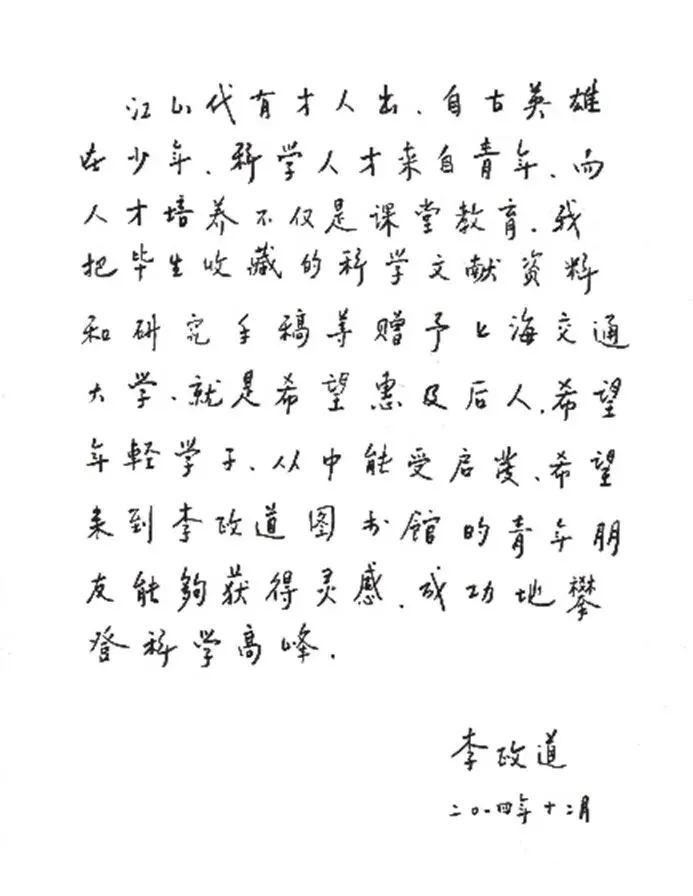 江山代有才人出、自古英雄
在少年、科学人才来自青年、而
人才培养不仅是课堂教育.我
把毕生收藏的科学文献资料
和研究手稿等赠予上海交通
大学、就是希望惠及后人、希望
年轻学子、从中能受启发、希望
来到李政道图书馆的青年朋
友能够获得灵感、成功地攀
登科学高峰.
李政道
二〇一四年十二月